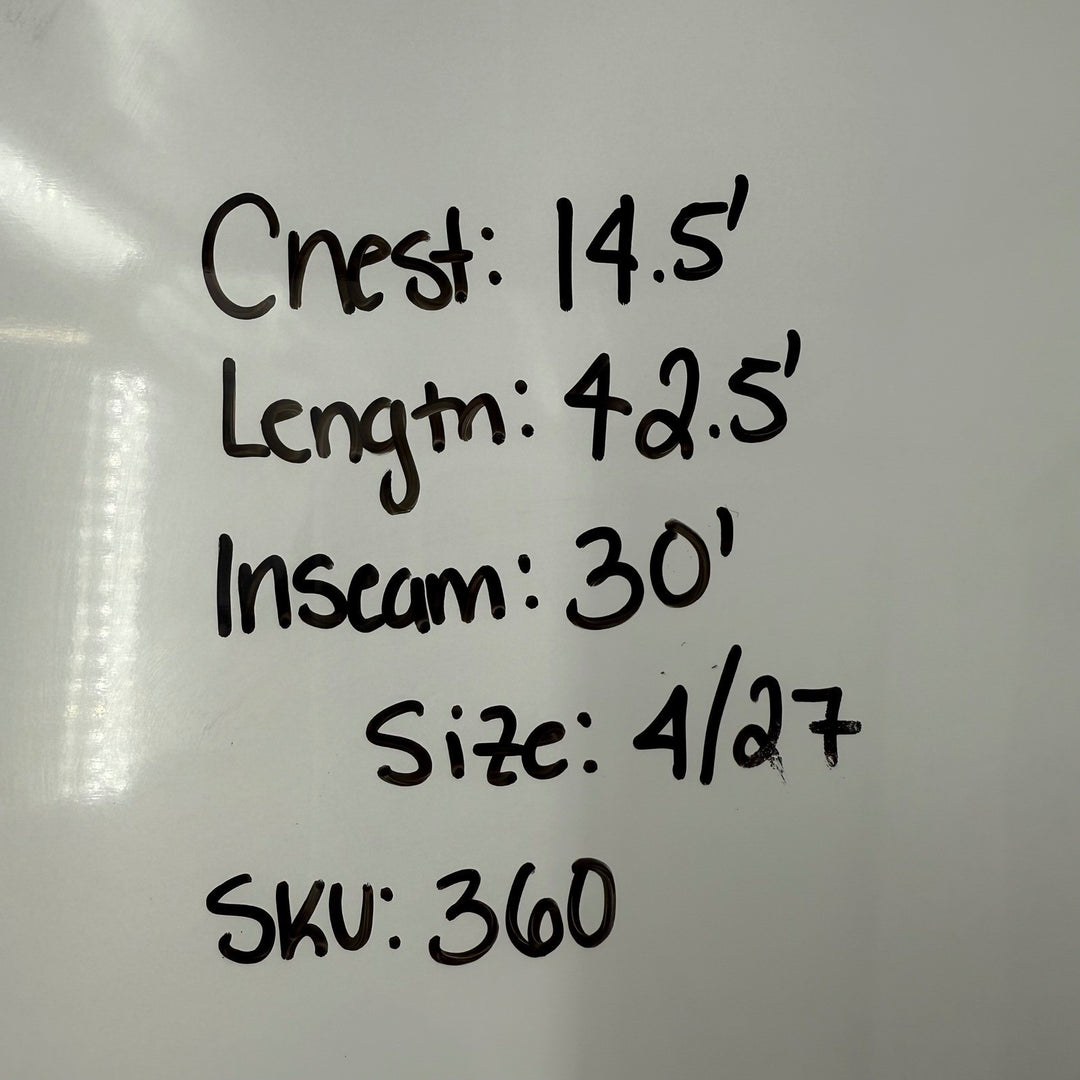 Chest: 14.5'
Length: 42.5'
Inseam: 30'
Size: 4/27
SKU: 360